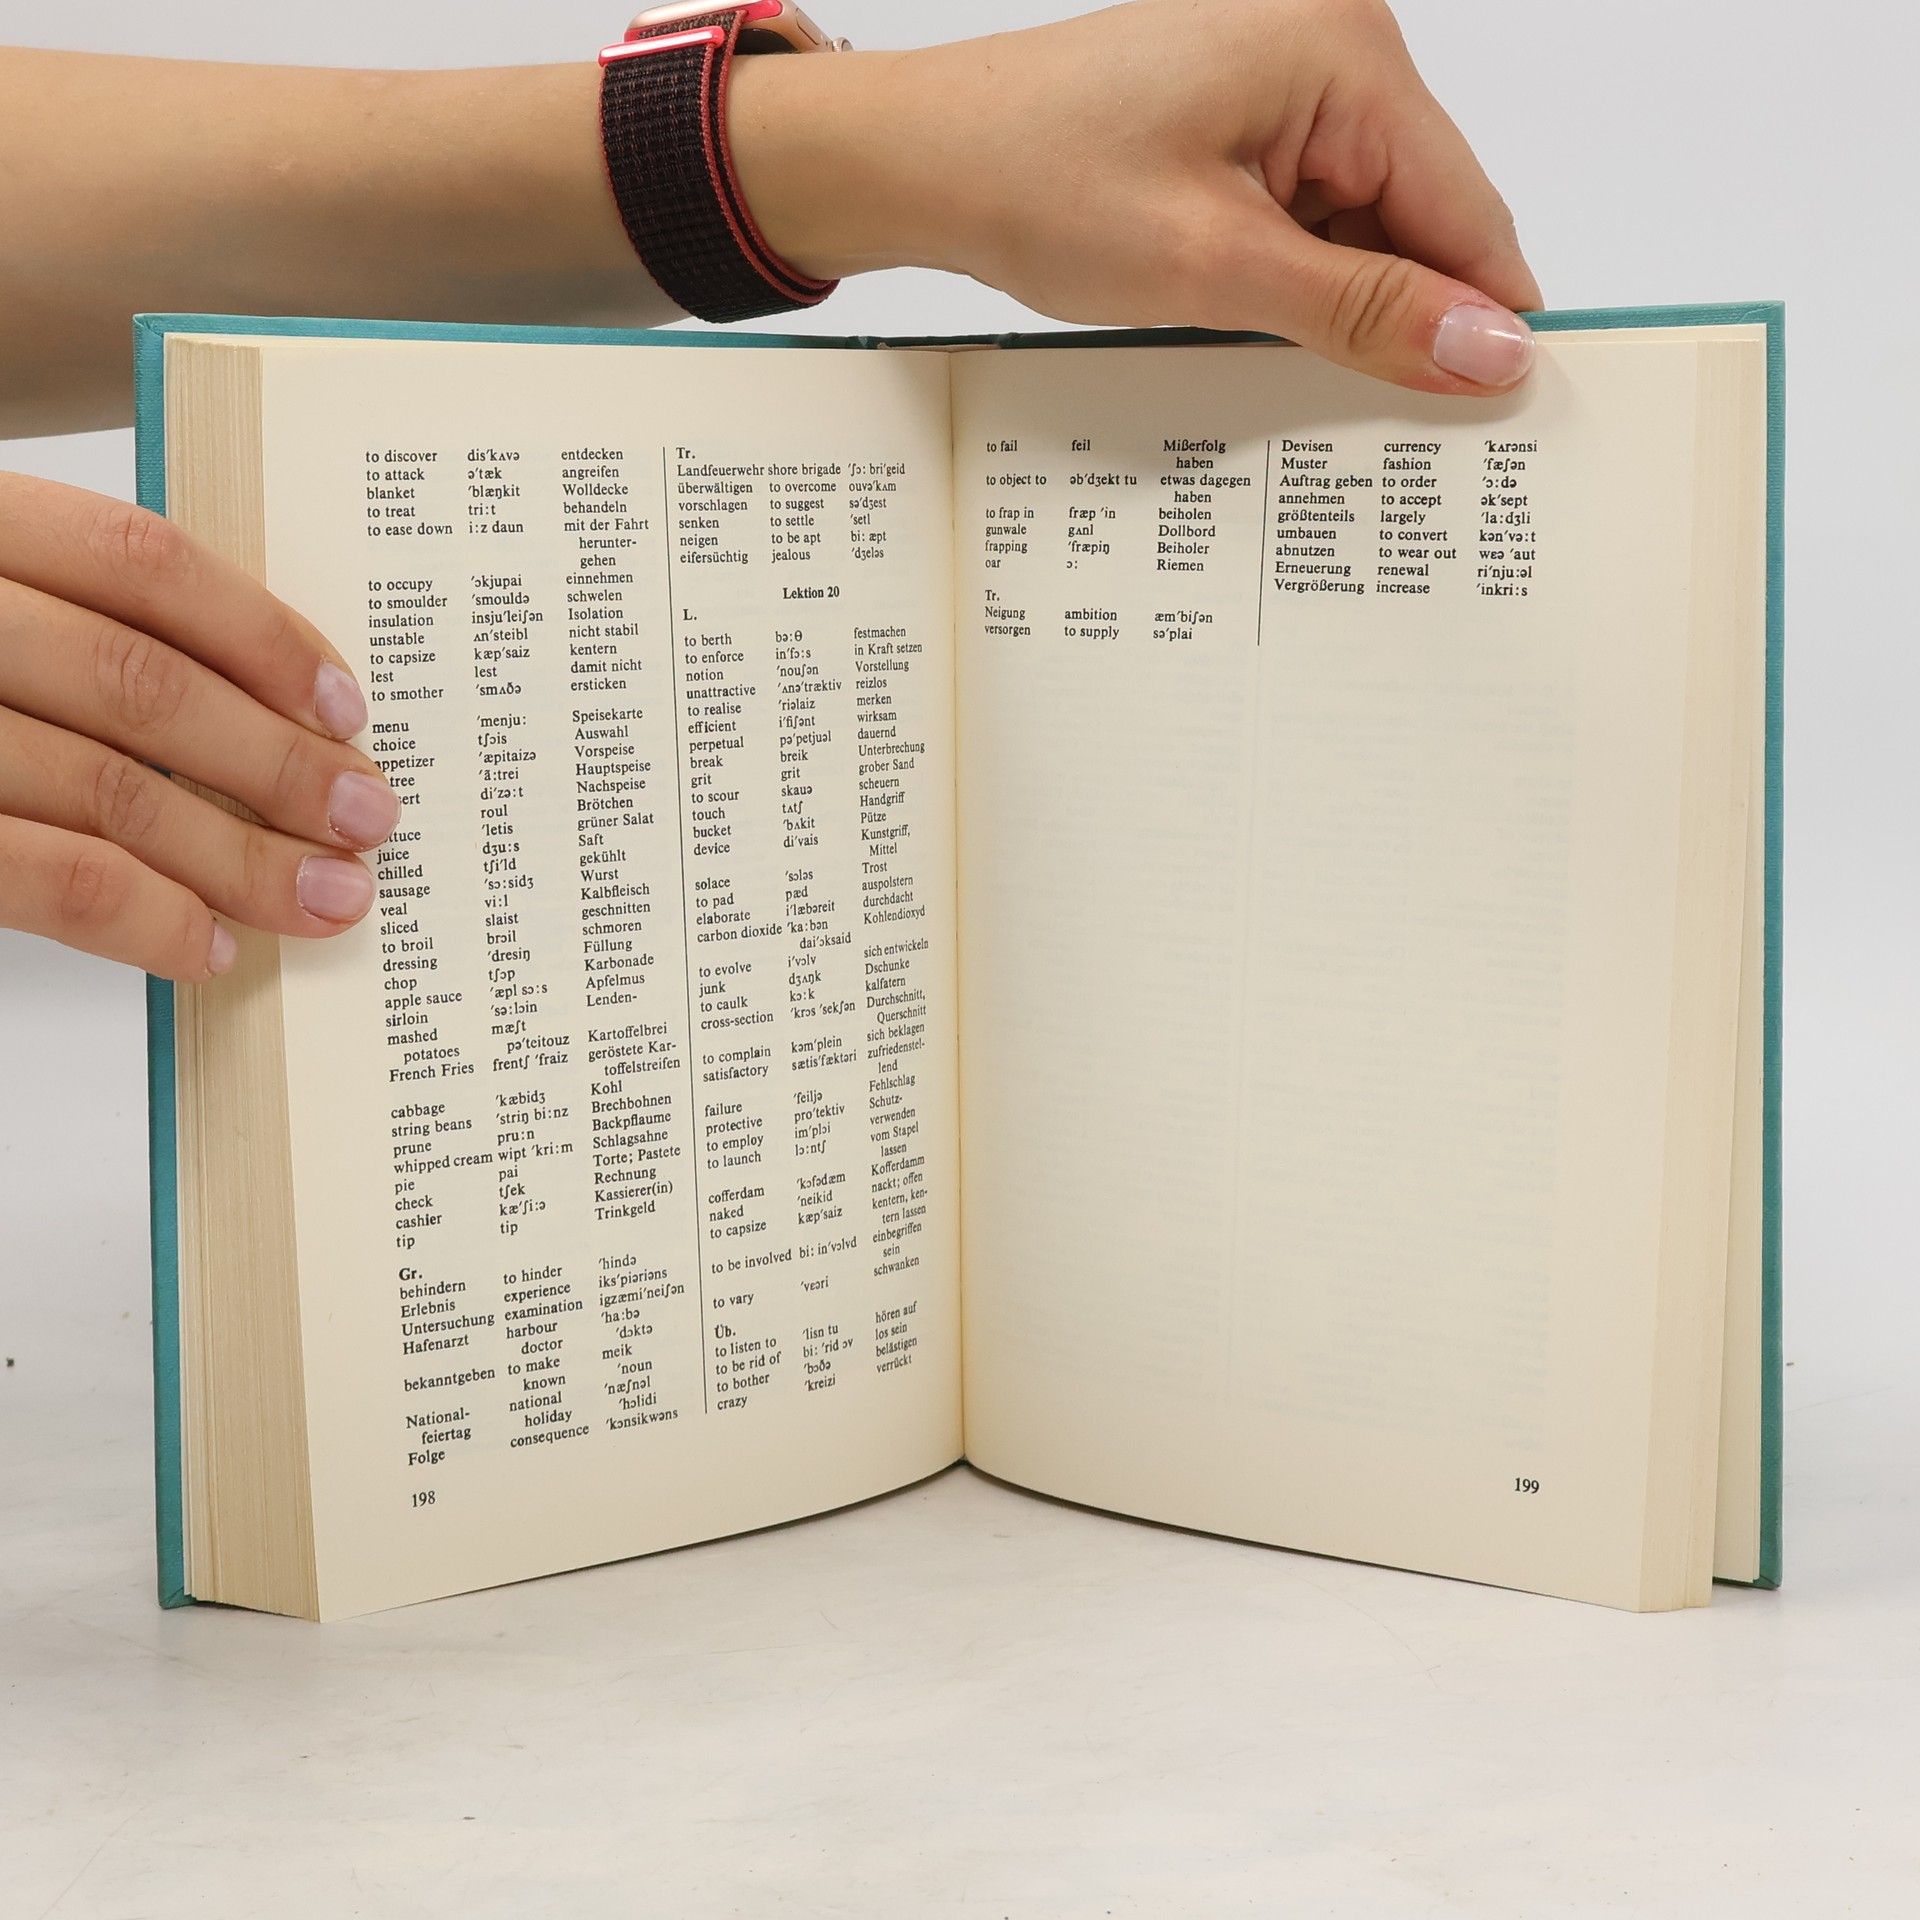 to discover dis'kʌvə entdecken
to attack ə'tæk angreifen
blanket 'blæŋkit Wolldecke
to treat tri:t behandeln
to ease down i:z daun mit der Fahrt
herunter-
gehen
to occupy 'ɔkjupai einnehmen
to smoulder 'smouldə schwelen
insulation insju'leiʃən Isolation
unstable ʌn'steibl nicht stabil
to capsize kæp'saiz kentern
lest lest damit nicht
to smother 'smʌðə ersticken
menu 'menju: Speisekarte
choice tʃɔis Auswahl
appetizer 'æpitaizə Vorspeise
tree 'ã:trei Hauptspeise
sert di'zə:t Nachspeise
roul Brötchen
ttuce 'letis grüner Salat
juice dʒu:s Saft
chilled tʃi'ld gekühlt
sausage 'sɔ:sidʒ Wurst
veal vi:l Kalbfleisch
sliced slaist geschnitten
to broil brɔil schmoren
dressing 'dresiŋ Füllung
chop tʃɔp Karbonade
apple sauce 'æpl sɔ:s Apfelmus
sirloin 'sə:lɔin Lenden-
mashed mæʃt
potatoes pə'teitouz Kartoffelbrei
French Fries frentʃ 'fraiz geröstete Kar-
toffelstreifen
cabbage 'kæbidʒ Kohl
string beans 'striŋ bi:nz Brechbohnen
prune pru:n Backpflaume
whipped cream wipt 'kri:m Schlagsahne
pie pai Torte; Pastete
check tʃek Rechnung
cashier kæ'ʃi:ə Kassierer(in)
tip tip Trinkgeld
Gr.
behindern to hinder 'hində
Erlebnis experience iks'piəriəns
Untersuchung examination igzæmi'neiʃən
Hafenarzt harbour 'ha:bə
doctor 'dɔktə
bekanntgeben to make meik
known 'noun
National- national 'næʃnəl
feiertag holiday 'hɔlidi
Folge consequence 'kɔnsikwəns
198
Tr.
Landfeuerwehr shore brigade 'ʃɔ: bri'geid
überwältigen to overcome ouvə'kʌm
vorschlagen to suggest sə'dʒest
senken to settle 'setl
neigen to be apt bi: æpt
eifersüchtig jealous 'dʒeləs
Lektion 20
L.
to berth bə:θ festmachen
to enforce in'fɔ:s in Kraft setzen
notion 'nouʃən Vorstellung
unattractive 'ʌnə'træktiv reizlos
to realise 'riəlaiz merken
efficient i'fiʃənt wirksam
perpetual pə'petjuəl dauernd
break breik Unterbrechung
grit grit grober Sand
to scour skauə scheuern
touch tʌtʃ Handgriff
bucket 'bʌkit Pütze
device di'vais Kunstgriff,
Mittel
solace 'sɔləs Trost
to pad pæd auspolstern
elaborate i'læbəreit durchdacht
carbon dioxide 'ka:bən Kohlendioxyd
dai'ɔksaid
to evolve i'vɔlv sich entwickeln
junk dʒʌŋk Dschunke
to caulk kɔ:k kalfatern
cross-section 'krɔs 'sekʃən Durchschnitt,
Querschnitt
to complain kəm'plein sich beklagen
satisfactory sætis'fæktəri zufriedenstel-
lend
failure 'feiljə Fehlschlag
protective prə'tektiv Schutz-
to employ im'plɔi verwenden
to launch lɔ:ntʃ vom Stapel
lassen
cofferdam 'kɔfədæm Kofferdamm
naked 'neikid nackt; offen
to capsize kæp'saiz kentern, ken-
tern lassen
to be involved bi: in'vɔlvd einbegriffen
sein
to vary 'vɛəri schwanken
Üb.
to listen to 'lisn tu hören auf
to be rid of bi: 'rid ɔv los sein
to bother 'bɔðə belästigen
crazy 'kreizi verrückt
to fail feil Mißerfolg
haben
to object to əb'dʒekt tu etwas dagegen
haben
to frap in fræp 'in beiholen
gunwale gʌnl Dollbord
frapping 'fræpiŋ Beiholer
oar ɔ: Riemen
Tr.
Neigung ambition æm'biʃən
versorgen to supply sə'plai
Devisen currency 'kʌrənsi
Muster fashion 'fæʃən
Auftrag geben to order 'ɔ:də
annehmen to accept ək'sept
größtenteils largely 'la:dʒli
umbauen to convert kən'və:t
abnutzen to wear out wɛə 'aut
Erneuerung renewal ri'nju:əl
Vergrößerung increase 'inkri:s
199